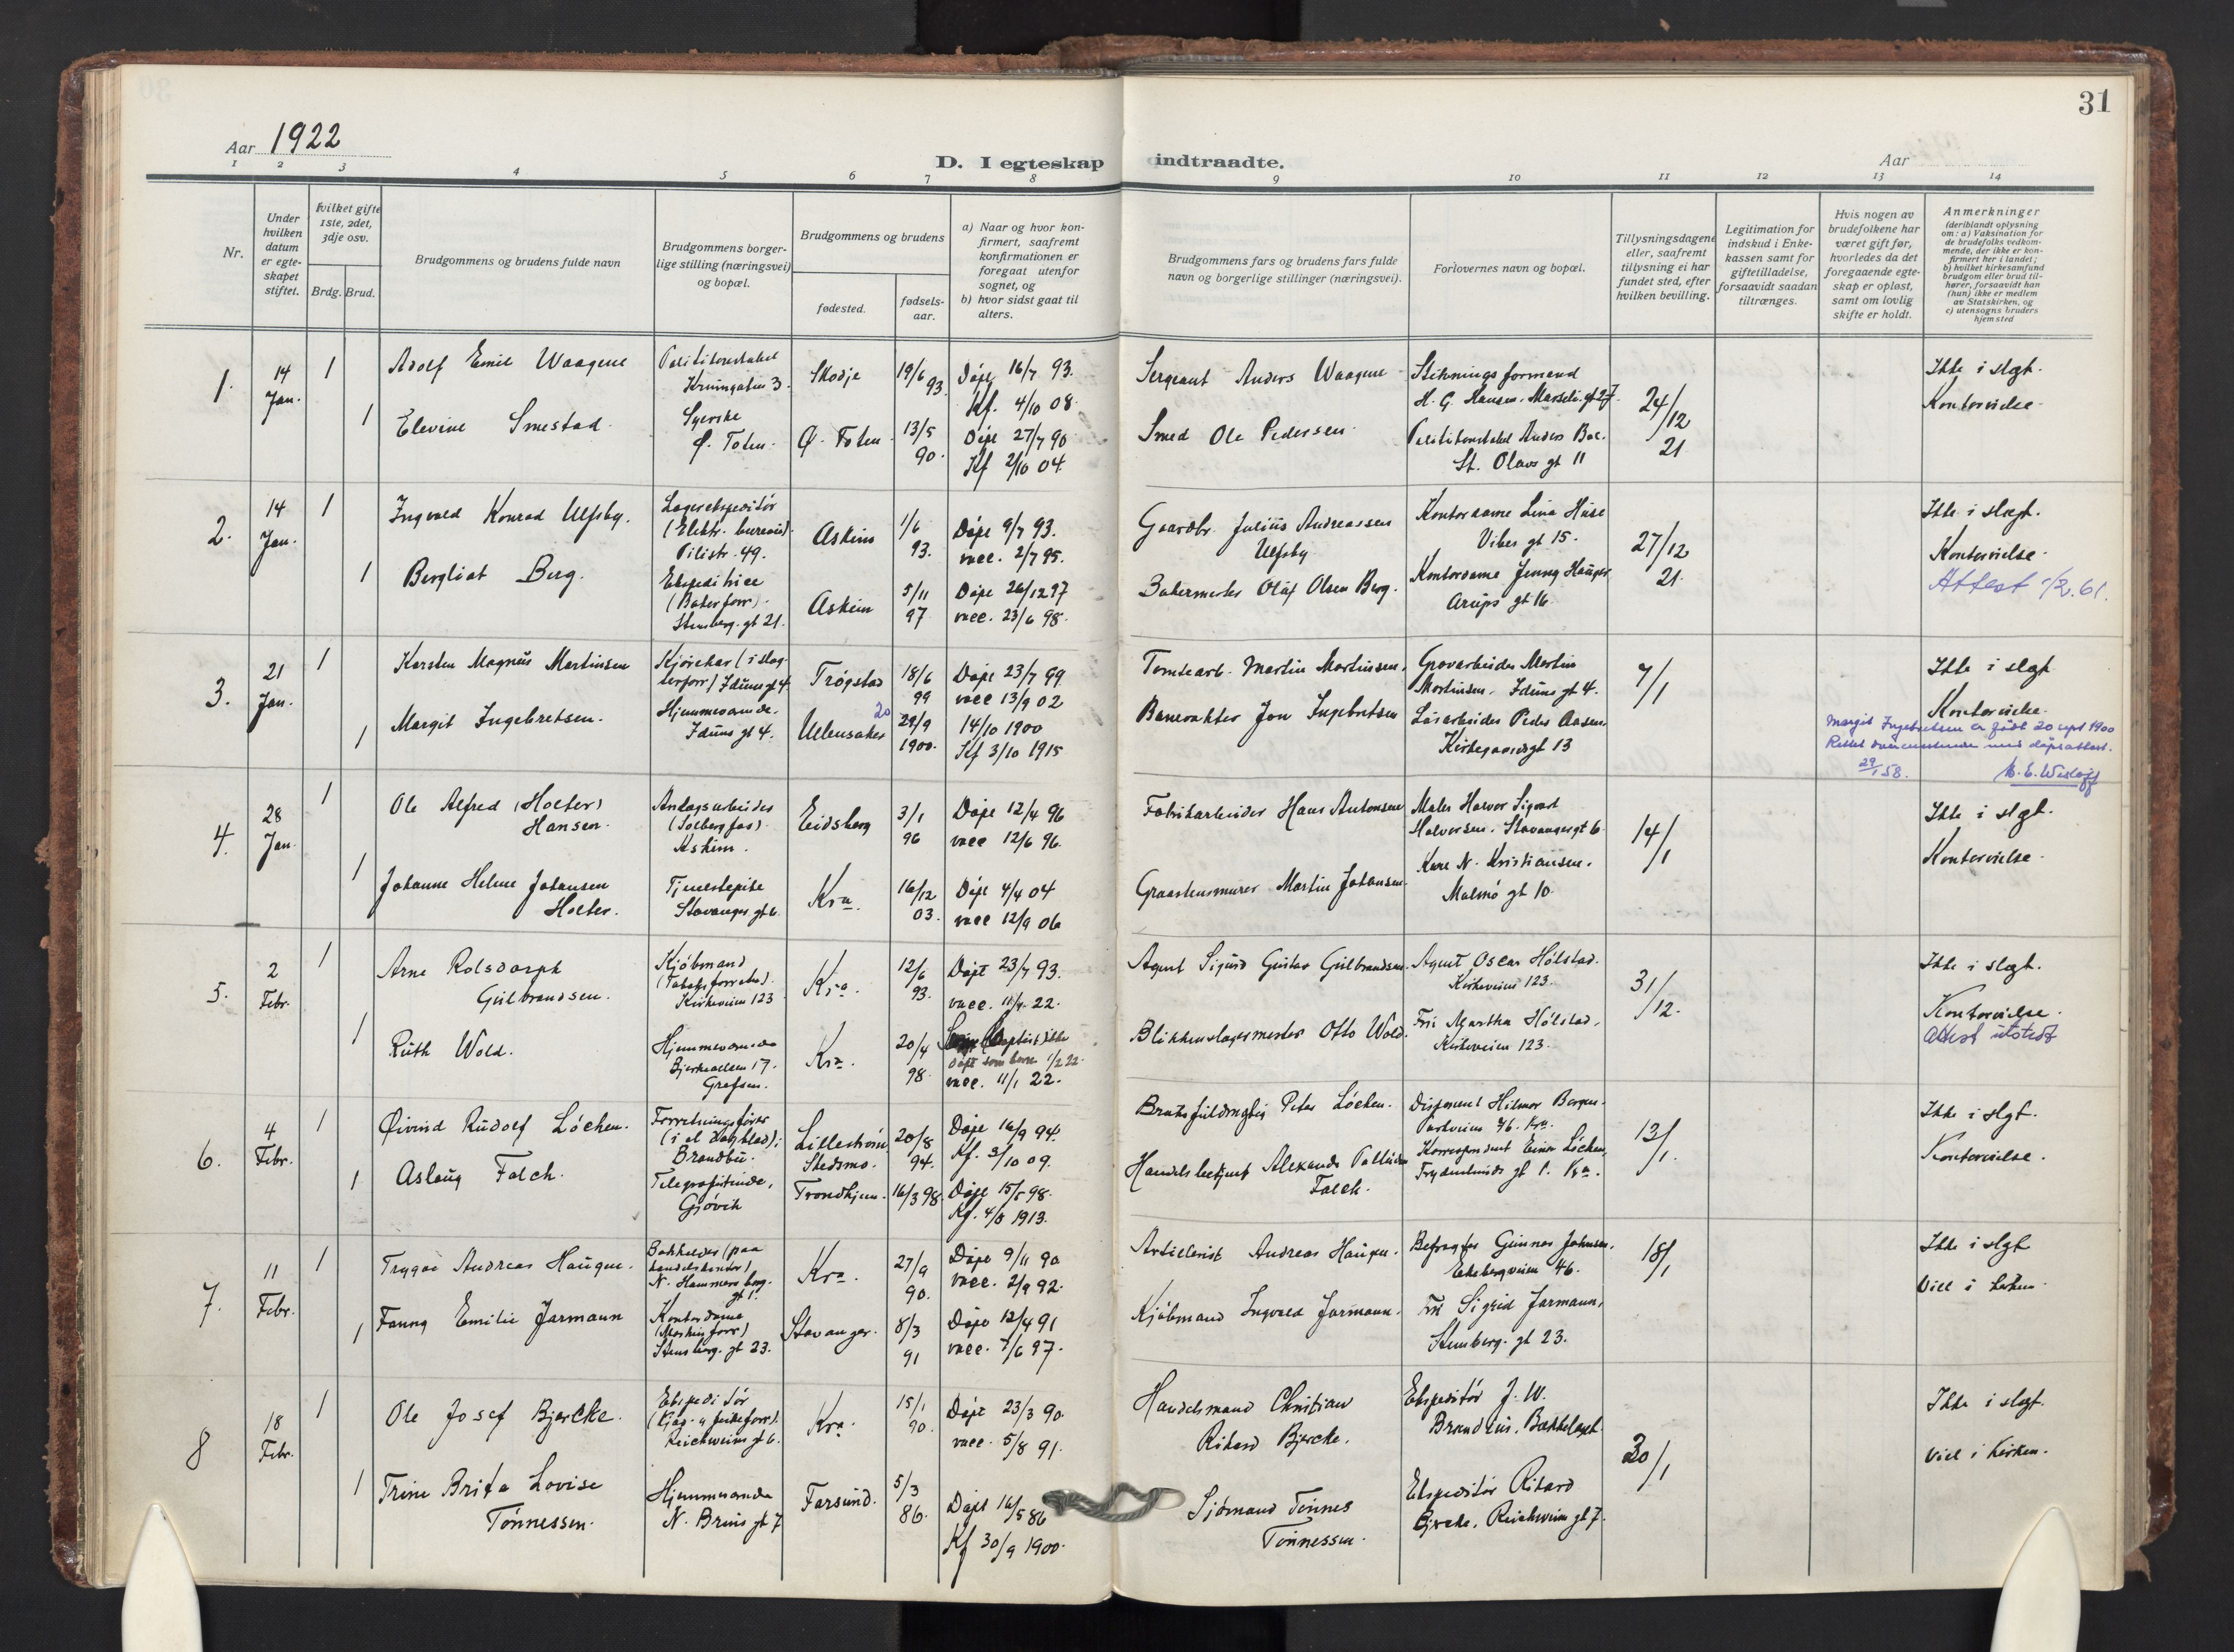 31
Aar 1922
D. I egteskap indtraadte.
Aar
1 2 3 4 5 6 7 8 9 10 11 12 13 14
Nr.
Under hvilken datum er egteskapet stiftet.
Hvilket gifte 1ste, 2det, 3dje osv.
Brdg. Brud.
Brudgommens og brudens fulde navn
Brudgommens borgerlige stilling (næringsvei) og bopæl.
Brudgommens og brudens
fødested.
fødselsaar.
a) Naar og hvor konfirmert, saafremt konfirmationen er foregaat utenfor sognet, og
b) hvor sidst gaat til alters.
Brudgommens fars og brudens fars fulde navn og borgerlige stillinger (næringsvei).
Forlovernes navn og bopæl.
Tillysningsdagene eller, saafremt tillysning ei har fundet sted, efter hvilken bevilling.
Legitimation for indskud i Enkekassen samt for giftetilladelse, forsaavidt saadan tiltrænges.
Hvis nogen av brudefolkene har været gift før, hvorledes da det foregaaende egteskap er opløst, samt om lovlig skifte er holdt.
Anmerkninger
(deriblandt oplysning om: a) Vaksination for de brudefolks vedkommende, der ikke er konfirmert her i landet;
b) hvilket kirkesamfund brudgom eller brud tilhører, forsaavidt han (hun) ikke er medlem av Statskirken, og
c) utensogns bruders hjemsted
1. 14 Jan. 1 Adolf Emil Waagene
3. Skodje 19/6 93. Døpt 16/7 93. Kf. 4/10 08.
Sergeant Anders Waagene
H. G. Hansen.
24/12 21
Ikke i slegt. Kontorvielse.
1 Elevine Smestad. Syerske Ø. Toten. Ø. Toten 13/5 90. Døpt 27/7 90 Kf 2/10 04.
Smed Ole Pedersen. St. Olavs gt 11
2. 14 Jan. 1 Ingvald Konrad Ulfsby. Lagerekspeditør (Elektr. bureau). Pilestr. 49. Askim 1/6 93. Døpt 9/7 93. vacc. 2/7 95.
Gaardbr. Julius Andreassen Ulfsby
Kontordame Lina Huse Vibes gt 15.
27/12 21.
Ikke i slegt. Kontorvielse. Attest 1/2.61.
1 Bergliot Berg. Ekspeditrice (Bakerforr). Stensberg. gt 21. Askim 5/11 97 Døpt 26/12 97 vacc. 23/6 98.
Bakermester Olaf Olsen Berg.
Kontordame Jenny Haugen Arups gt 16.
3. 21 Jan. 1 Karsten Magnus Martinsen Kjørekar (i slagterforr) Iduns gt 4. Trøgstad 18/6 99 Døpt 23/7 99. vacc 13/9 02
Tomtearb. Martin Martinsen. Grovarbeider Martin Martinsen. Iduns gt 4.
7/1
Ikke i slegt Kontorvielse.
1 Margit Ingebretsen. Hjemmeværende. Iduns gt 4. Ullensaker 20 29/9 1900. 14/10 1900 Kf 3/10 1915
Banevokter Jon Ingebretsen Løsarbeider Peder Aasen. Kirkegaardsgt 13
Margit Ingebretsen er født 20 sept 1900
Rettet overensstemmende med dåpsattest.
29/1 58.
4. 28 Jan. 1 Ole Alfred (Holter) Hansen. Anlegsarbeider (Solbergfos). Askim. Eidsberg 3/1 96 Døpt 12/4 96 vacc 12/6 96.
Fabrikarbeider Hans Antonsen Maler Harvor Sigvart Halvorsen. Stavangergt 6
14/1
Ikke i slegt. Kontorvielse.
1 Johanne Helene Johansen Holter. Tjenestepike Stavanger gt 6. Kra. 16/12 03. Døpt 4/4 04 vacc 12/9 06
Graastensmurer Martin Johansen. Kare N. Kristiansen. Malmø gt 10.
5. 2 Febr. 1 Arne Rolsdorph Gulbrandsen. Kjøbmand (Tobaksforretn). Kirkeveien 123 Kra. 12/6 93. Døpt 23/7 93. vacc. 11/1. 22.
Agent Sigurd Gustav Gulbrandsen. Agent Oscar Hølstad. Kirkeveien 123.
31/12.
Ikke i slegt. Kontorvielse. attest utstedt
1 Ruth Wold. Hjemmeværende Bjerkealleen 17. Grefsen. Kra. 20/4 98. Døpt som barn 1/2 22. vacc. 11/1 22.
Blikkenslagermester Otto Wold. Fru Agatha Hølstad, Kirkeveien 123.
6. 4 Febr. 1 Øivind Rudolf Løchen. Forretningsfører (i et dagblad); Brandbu. Lillestrøm, Skedsmo. 20/8 94. Døpt 16/9 94. Kf. 3/10 09.
Bruksfuldmægtig Peter Løchen. Disponent Hilmar Bergen. Kra.
13/1.
Ikke i slegt. Kontorvielse.
1 Aslaug Falch. Telegrafistinde, Gjøvik Trondhjem. 16/3 98. Døpt 15/5 98. Kf. 4/5 1913.
Handelsbetjent Alexander Falch. Korrespondent Einar Løchen, Kra.
7. 11 Febr. 1 Trygve Andreas Haugen. Bokholder (paa handelskontor) N. Hammersborg. gt 1. Kra. 27/9 90. Døpt 9/11 90 vacc. 2/9 92.
Artillerist Andreas Haugen. Gunnar Johnsen. Ekebergveien 46.
18/1
Ikke i slegt Viet i kirken.
1 Fanny Emilie Jarmann Kontordame (Maskinforr) Stensberg. gt 23. Stavanger. 8/3 91 Døpt 12/4 91 vacc. 7/6 97.
Kjøbmand Ingvald Jarmann. Frk Sigrid Jarmann, Stensberg. gt 23.
8 18 Febr. 1 Ole Josef Bjercke. Ekspeditør Reichweins gt 6. Kra. 15/1 90. Døpt 23/3 90. vacc. 5/8 91.
Handelsmand Christian Rikard Bjercke. Ekspeditør J. W. Brandrus. Bækkelaget.
30/1
Ikke i slegt. Viet i Kirken.
1 Trine Brita Lovise Tønnessen. Hjemmeværende N. Bruns gt 7 Farsund. 5/3 86. Døpt 16/5 86 Kf 30/9 1900.
Sjømand Tønnes Tønnessen. Ekspeditør Rikard Bjercke. Reichweins gt 7.